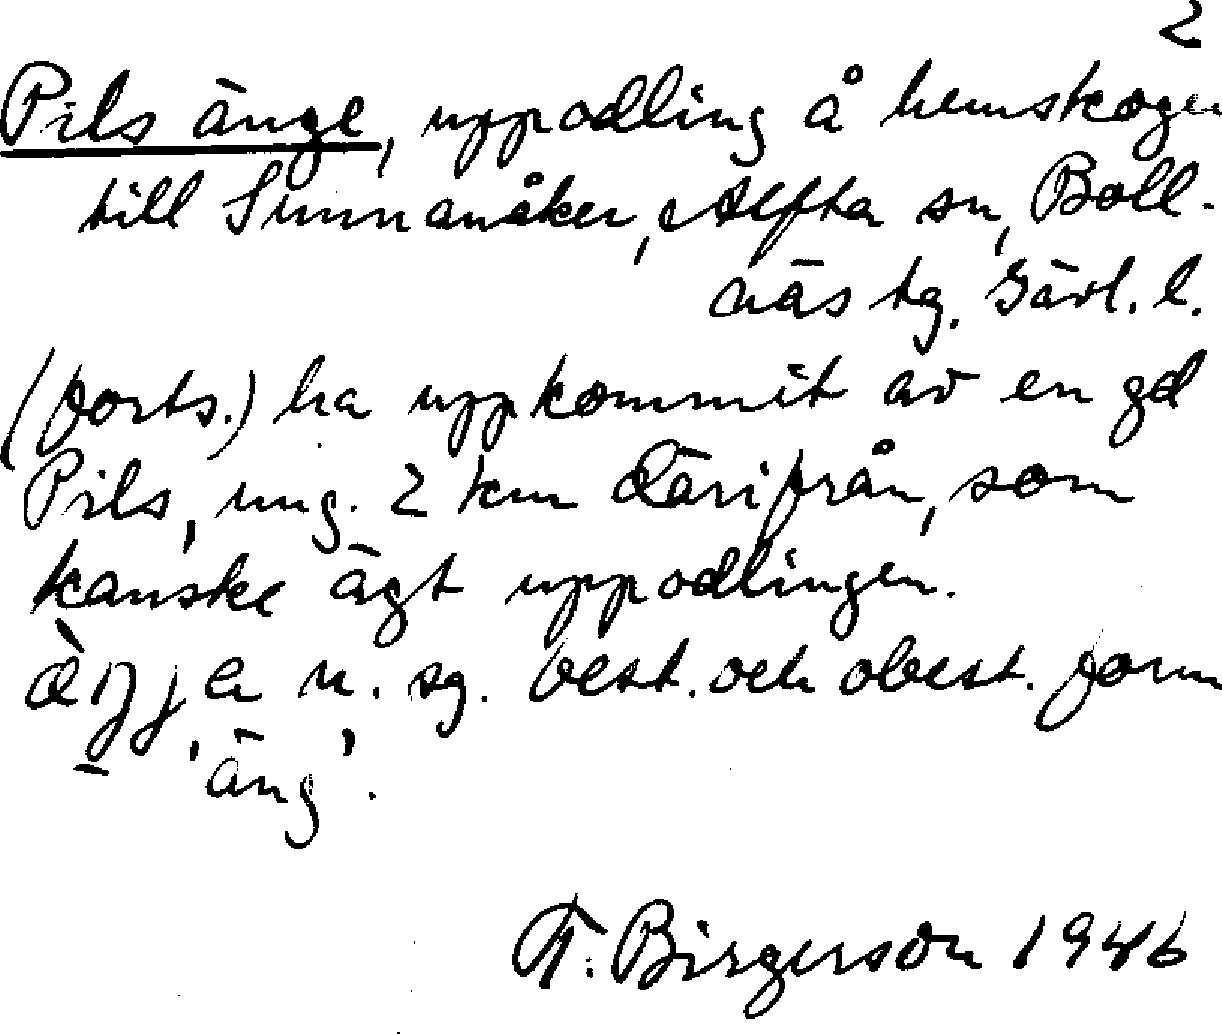 2
Pils änge, uppodling å hemskogen
till Sunnanåker, Alfta sn, Boll-
näs tg. Gävl. l.
(forts.) ha uppkommit av en gd
Pils, ung. 2 km därifrån, som
kanske ägt uppodlingen.
n. sg. best. och obest. form
'äng'.
T. Birgerson 1946